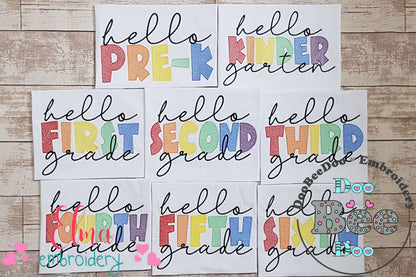 hello
PRE-K
hello
KINDER
garten
hello
FIRST
grade
hello
SECOND
grade
hello
THIRD
grade
hello
FOURTH
grade
hello
FIFTH
grade
hello
SIXTH
grade
Tma
embroidery
Doo
Bee
Doo
DooBeeDoo Embroidery